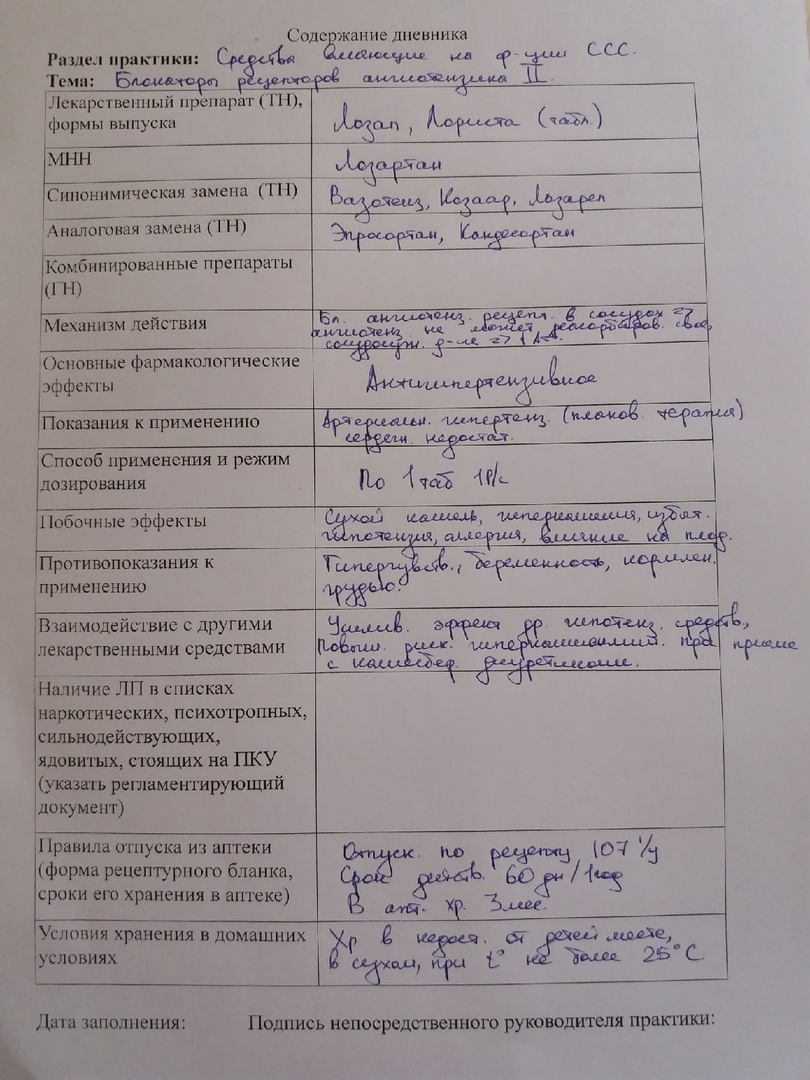 Содержание дневника
Раздел практики: Средства влияющие на ф-ции ССС.
Тема: Блокаторы рецепторов ангиотензина II.
Лекарственный препарат (ТН),
формы выпуска
Лозап, Лориста (табл.)
МНН
Лозартан
Синонимическая замена (ТН)
Вазотенз, Козаар, Лозарел
Аналоговая замена (ТН)
Эпросартан, Кандесартан
Комбинированные препараты
(ТН)
Механизм действия
Бл. ангиотенз. рецепт. в сосудах =>
ангиотенз. не может свое
сосудосуж. д-ие =>
Основные фармакологические
эффекты
Антигипертензивное
Показания к применению
Артериальн. гипертенз. (планов. терапия)
сердечн. недостат.
Способ применения и режим
дозирования
По 1 таб 1р/с
Побочные эффекты
Сухой кашель, гиперкалиемия, избыт.
гипотензия, аллергия, влияние на плод.
Противопоказания к
применению
Гиперчувств., беременность, кормлен.
грудью.
Взаимодействие с другими
лекарственными средствами
Усилив. эффект др. гипотенз. средств,
Повыш. риск. гиперкалиемии. при приеме
с калийсбер. диуретиками.
Наличие ЛП в списках
наркотических, психотропных,
сильнодействующих,
ядовитых, стоящих на ПКУ
(указать регламентирующий
документ)
Правила отпуска из аптеки
(форма рецептурного бланка,
сроки его хранения в аптеке)
Отпуск. по рецепту 107-1/у
Срок действ. 60 дн/1год
В апт. хр. 3 мес.
Условия хранения в домашних
условиях
Хр в недост. от детей месте,
в сухом, при t° не более 25°С.
Дата заполнения: Подпись непосредственного руководителя практики: